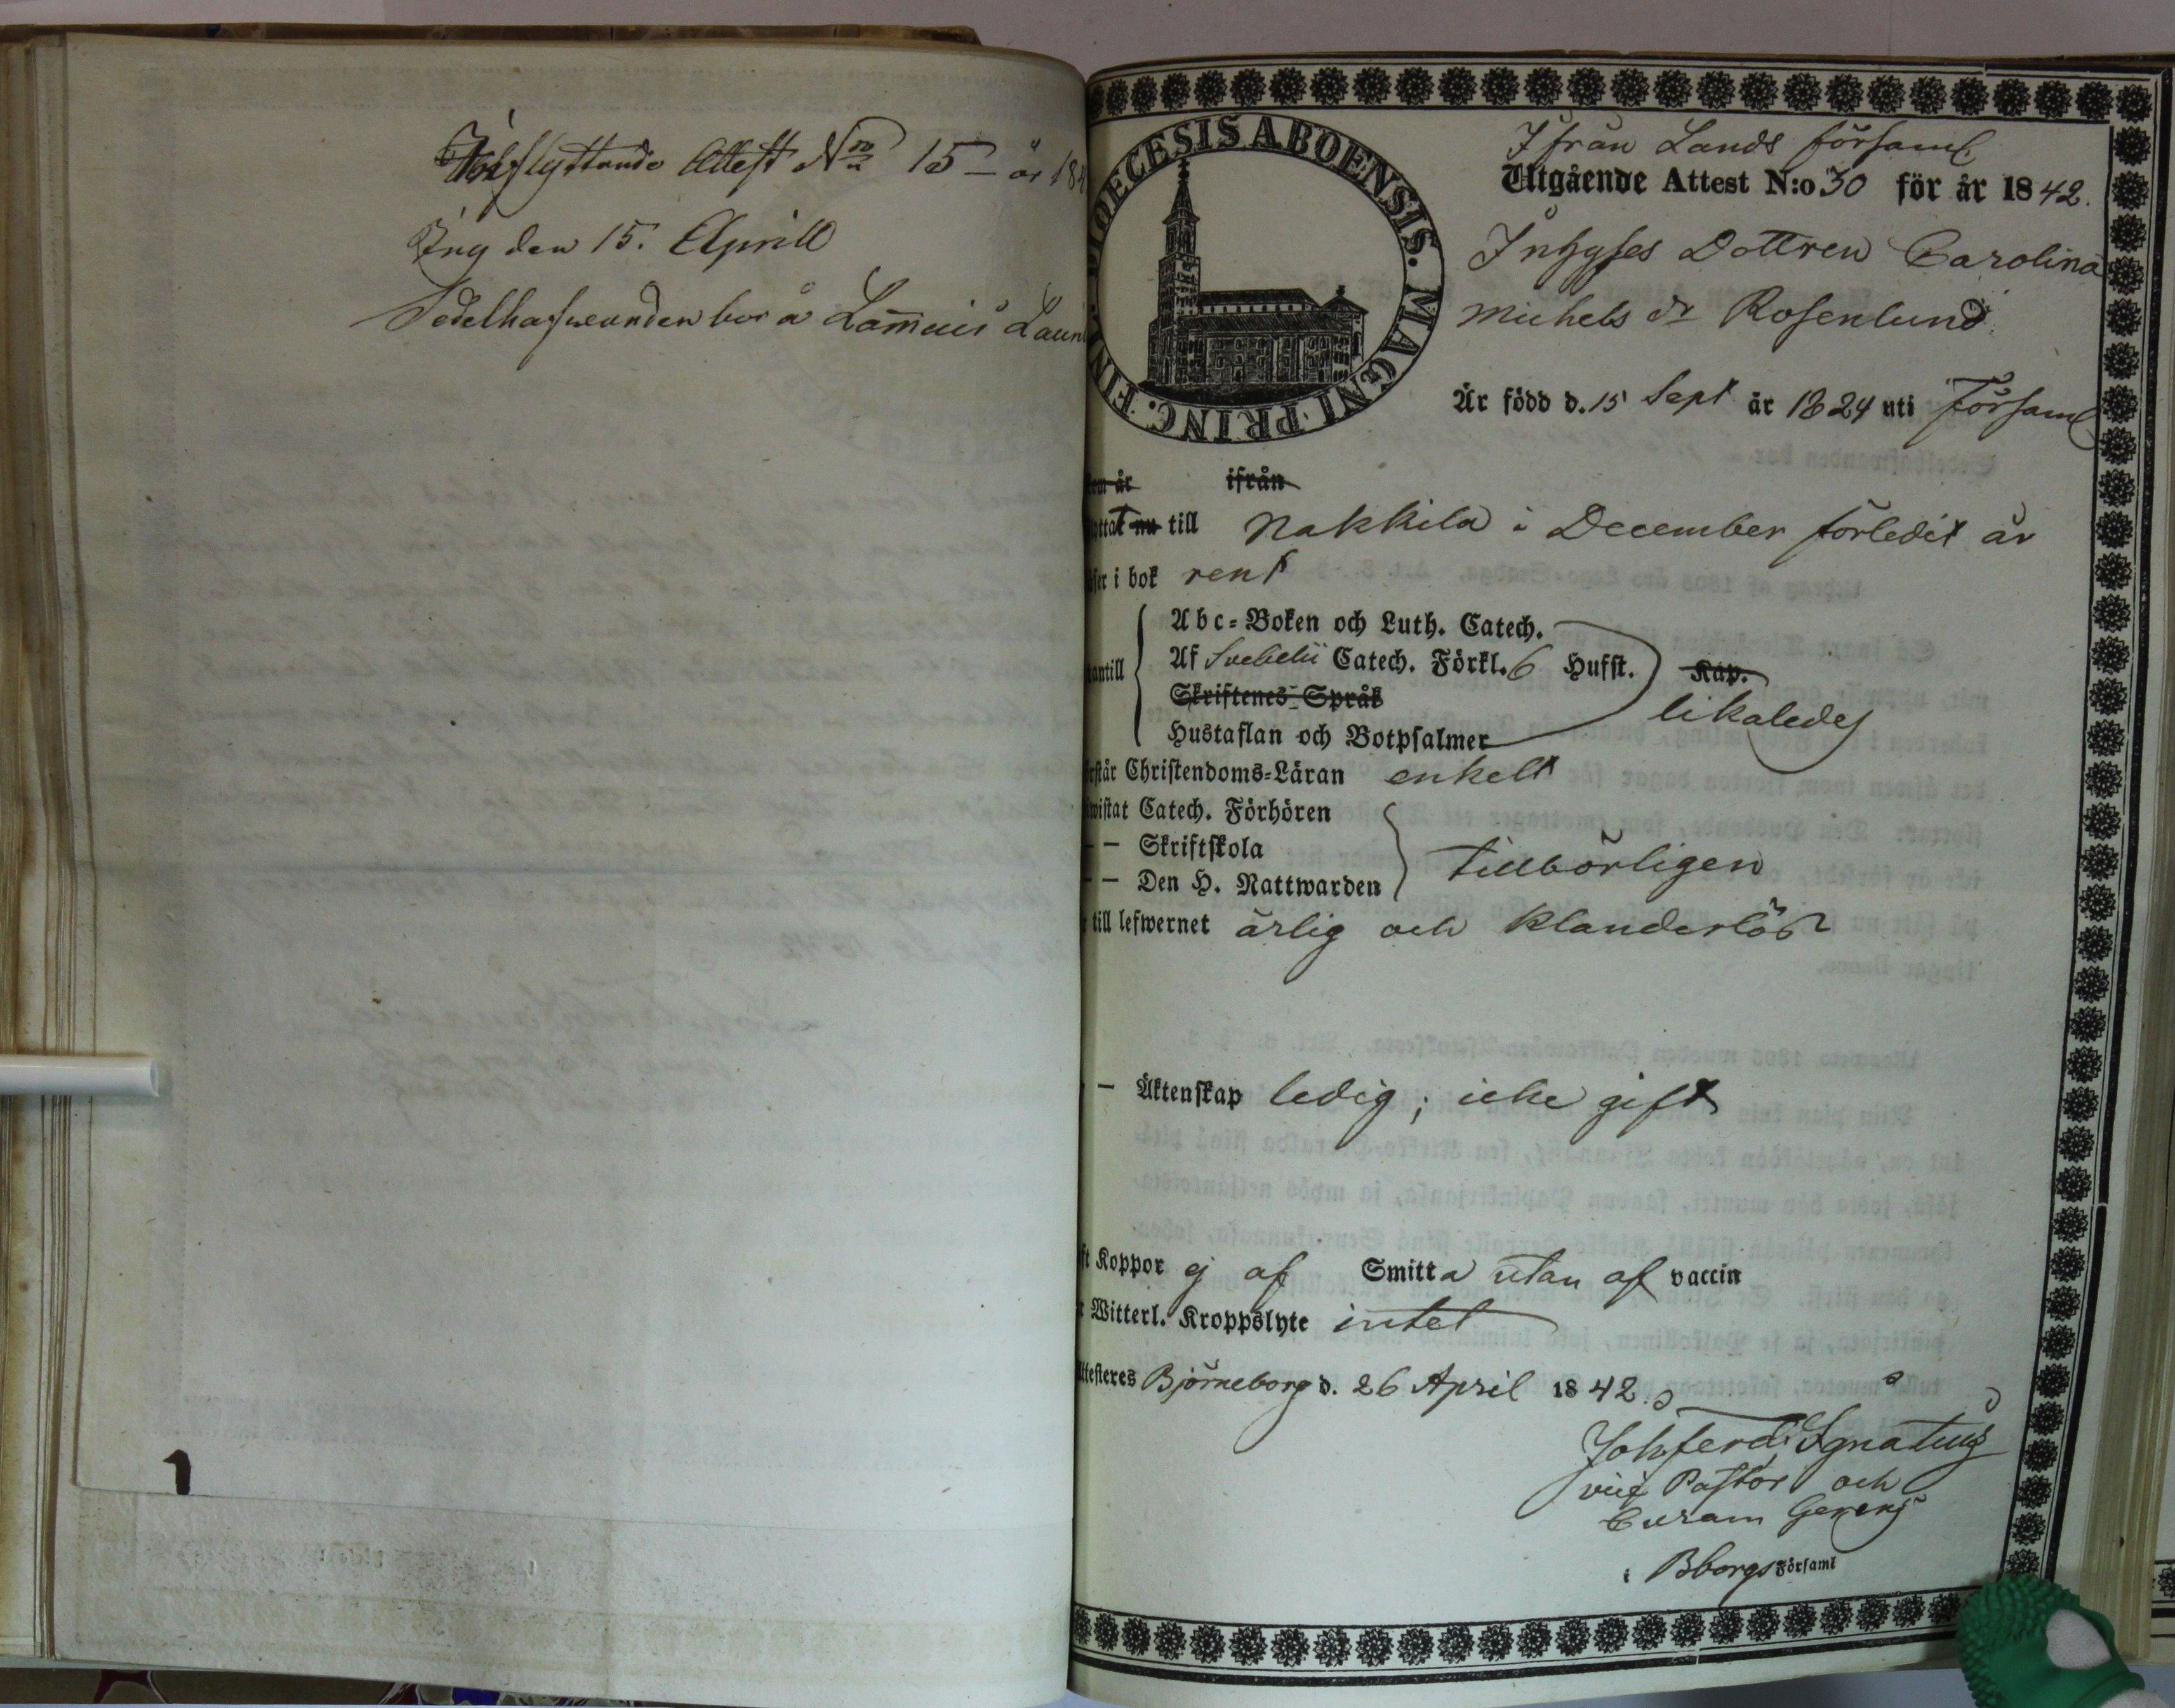 Inflyttande Attest N:o 15 – år 184
Ing den 15. Aprill
Sedelhafwanden bor å Lammais Laun
DIOECESIS ABOENSIS. MAGNI PRINC. FINL
Ifrån Lands församl
Utgående Attest N:o 30 för år 1842.
Inhyses Dottren Carolina
Michels dr Rosenlund
Är född d. 15 Sept år 1824 uti Församl
om år ifrån
yttat nu till Nakkila i December förledit år
äser i bok rent
Abc-Boken och Luth. Catech.
Af Svebelii Catech. Förkl. 6 Hufst. Kap.
antill
Skriftenes Språk
likaledes
Hustaflan och Botpsalmer
rstår Christendoms-Läran enkelt
wistat Catech. Förhören
– – Skriftskola
tillbörligen
– – Den H. Nattwarden
r till lefwernet ärlig och klanderlös
– Äktenskap ledig; icke gift
ft Koppor ej af Smitta utan af vaccin
r Witterl. Kroppslyte intet
Attesteres Björneborg d. 26 April 1842.
Joh. Ferd. Ignatius
vice Pastor och
Curam Gerens
i Bborgs Församl